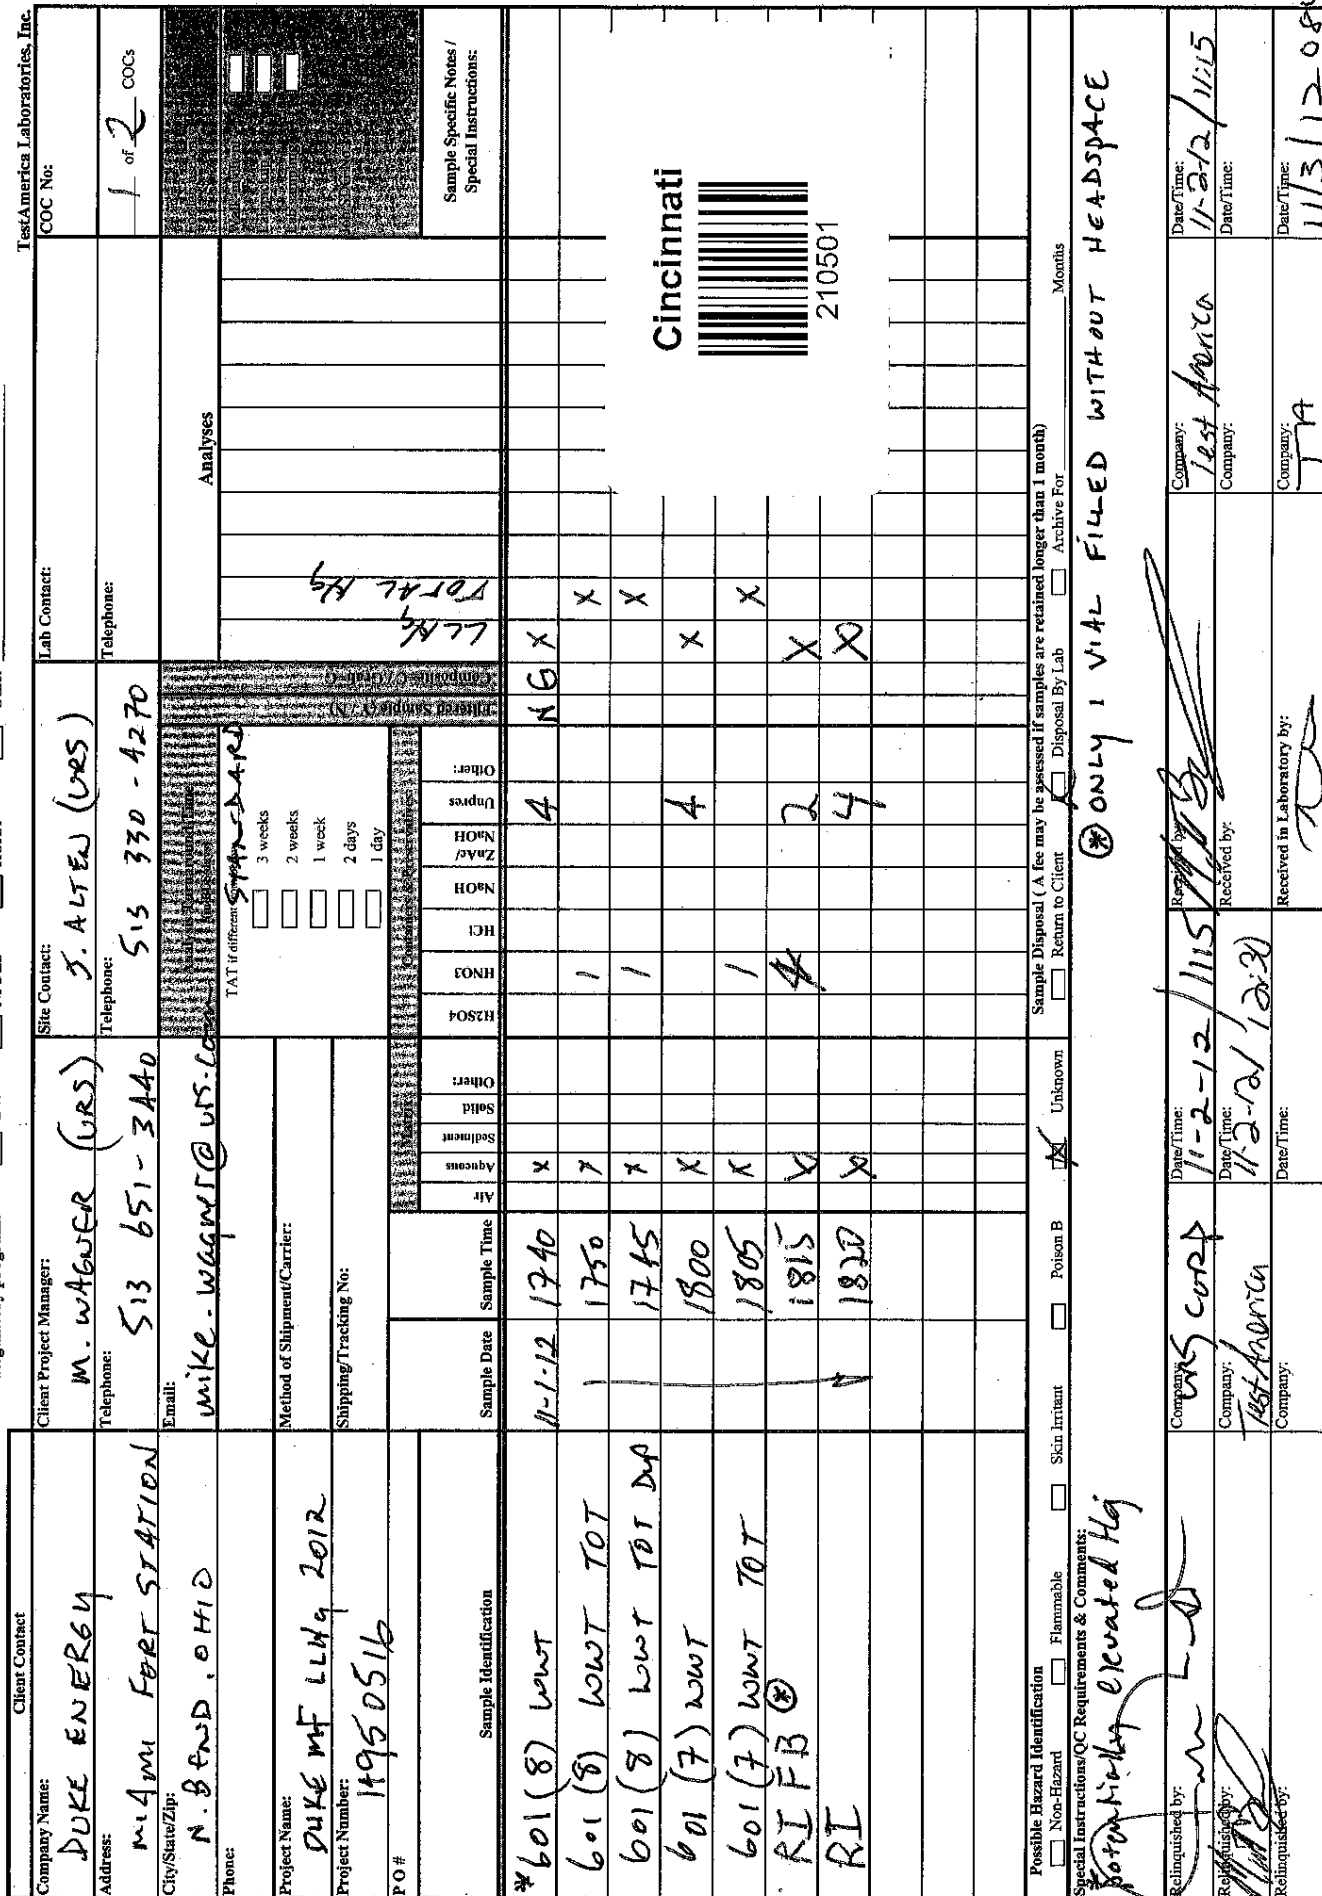 TestAmerica Laboratories, Inc.
Client Contact
Company Name:
DUKE ENERGY
Address:
MIAMI FORT STATION
City/State/Zip:
N. BEND, OHIO
Phone:
Project Name:
DUKE MF LLHg 2012
Project Number:
14950516
PO #
Client Project Manager:
M. WAGNER (URS)
Telephone:
513 651-3440
Email:
mike.wagner@urs.com
Method of Shipment/Carrier:
Shipping/Tracking No:
Site Contact:
J. ALTEN (URS)
Telephone:
513 330-4270
Analysis Turnaround Time
TAT if different
STANDARD
3 weeks
2 weeks
1 week
2 days
1 day
Lab Contact:
Telephone:
COC No:
1 of 2 COCs
Analyses
Sample Identification
Sample Date
Sample Time
Matrix
Air
Aqueous
Sediment
Solid
Other:
Containers & Preservatives
H2SO4
HNO3
HCl
NaOH
ZnAc/ NaOH
Unpres
Other:
Filtered Sample (Y / N)
Composite=C / Grab=G
LLHg
TOTAL Hg
Sample Specific Notes /
Special Instructions:
* 601 (8) WWT 11-1-12 1740 X 4 N G X
601 (8) WWT TOT 1750 X 1 X
601 (8) WWT TOT Dup 1745 X 1 X
601 (7) WWT 1800 X 4 X
601 (7) WWT TOT 1805 X 1 X
RI FB (*) 1815 X 4 2 X
RI 1820 X 4 X
Cincinnati
210501
Possible Hazard Identification
Non-Hazard
Flammable
Skin Irritant
Poison B
Unknown
Sample Disposal ( A fee may be assessed if samples are retained longer than 1 month)
Return to Client
Disposal By Lab
Archive For
Months
Special Instructions/QC Requirements & Comments:
* Potentially elevated Hg
(*) ONLY 1 VIAL FILLED WITHOUT HEADSPACE
Relinquished by:
Company:
URS CORP
Date/Time:
11-2-12 / 1115
Received by:
Company:
Test America
Date/Time:
11-2-12 / 11:15
Relinquished by:
Company:
Test America
Date/Time:
11-2-12 / 12:30
Received by:
Company:
Date/Time:
Relinquished by:
Company:
Date/Time:
Received in Laboratory by:
Company:
TA
Date/Time:
11/3/12